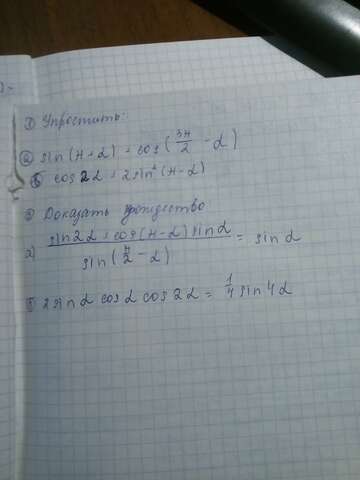 ① Упростить:
а) sin(π+α) + cos(3π/2 - α)
б) cos2α + 2sin²(π-α)
② Доказать тождество
а) sin2α + cos(π-α) sinα / sin(π/2 - α) = sinα
б 2sinα cosα cos2α = 1/4 sin4α